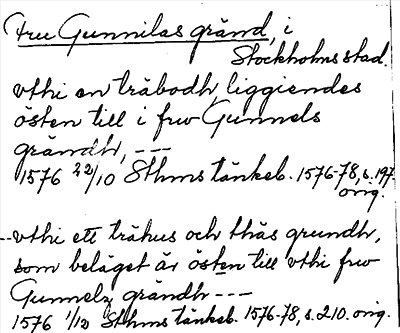 Fru Gunnilas gränd, i
Stockholms stad.
vthi en träbodh liggiendes
östen till i frw Gunnels
grändh, ---
1576 22/10 Sthms tänkeb. 1576-78, s. 197
orig.
--vthi ett trähus och thäs grundh,
som beläget är östen till vthi frw
Gunnelz grändh ---
1576 1/12 Sthms tänkeb. 1576-78, s. 210. orig.